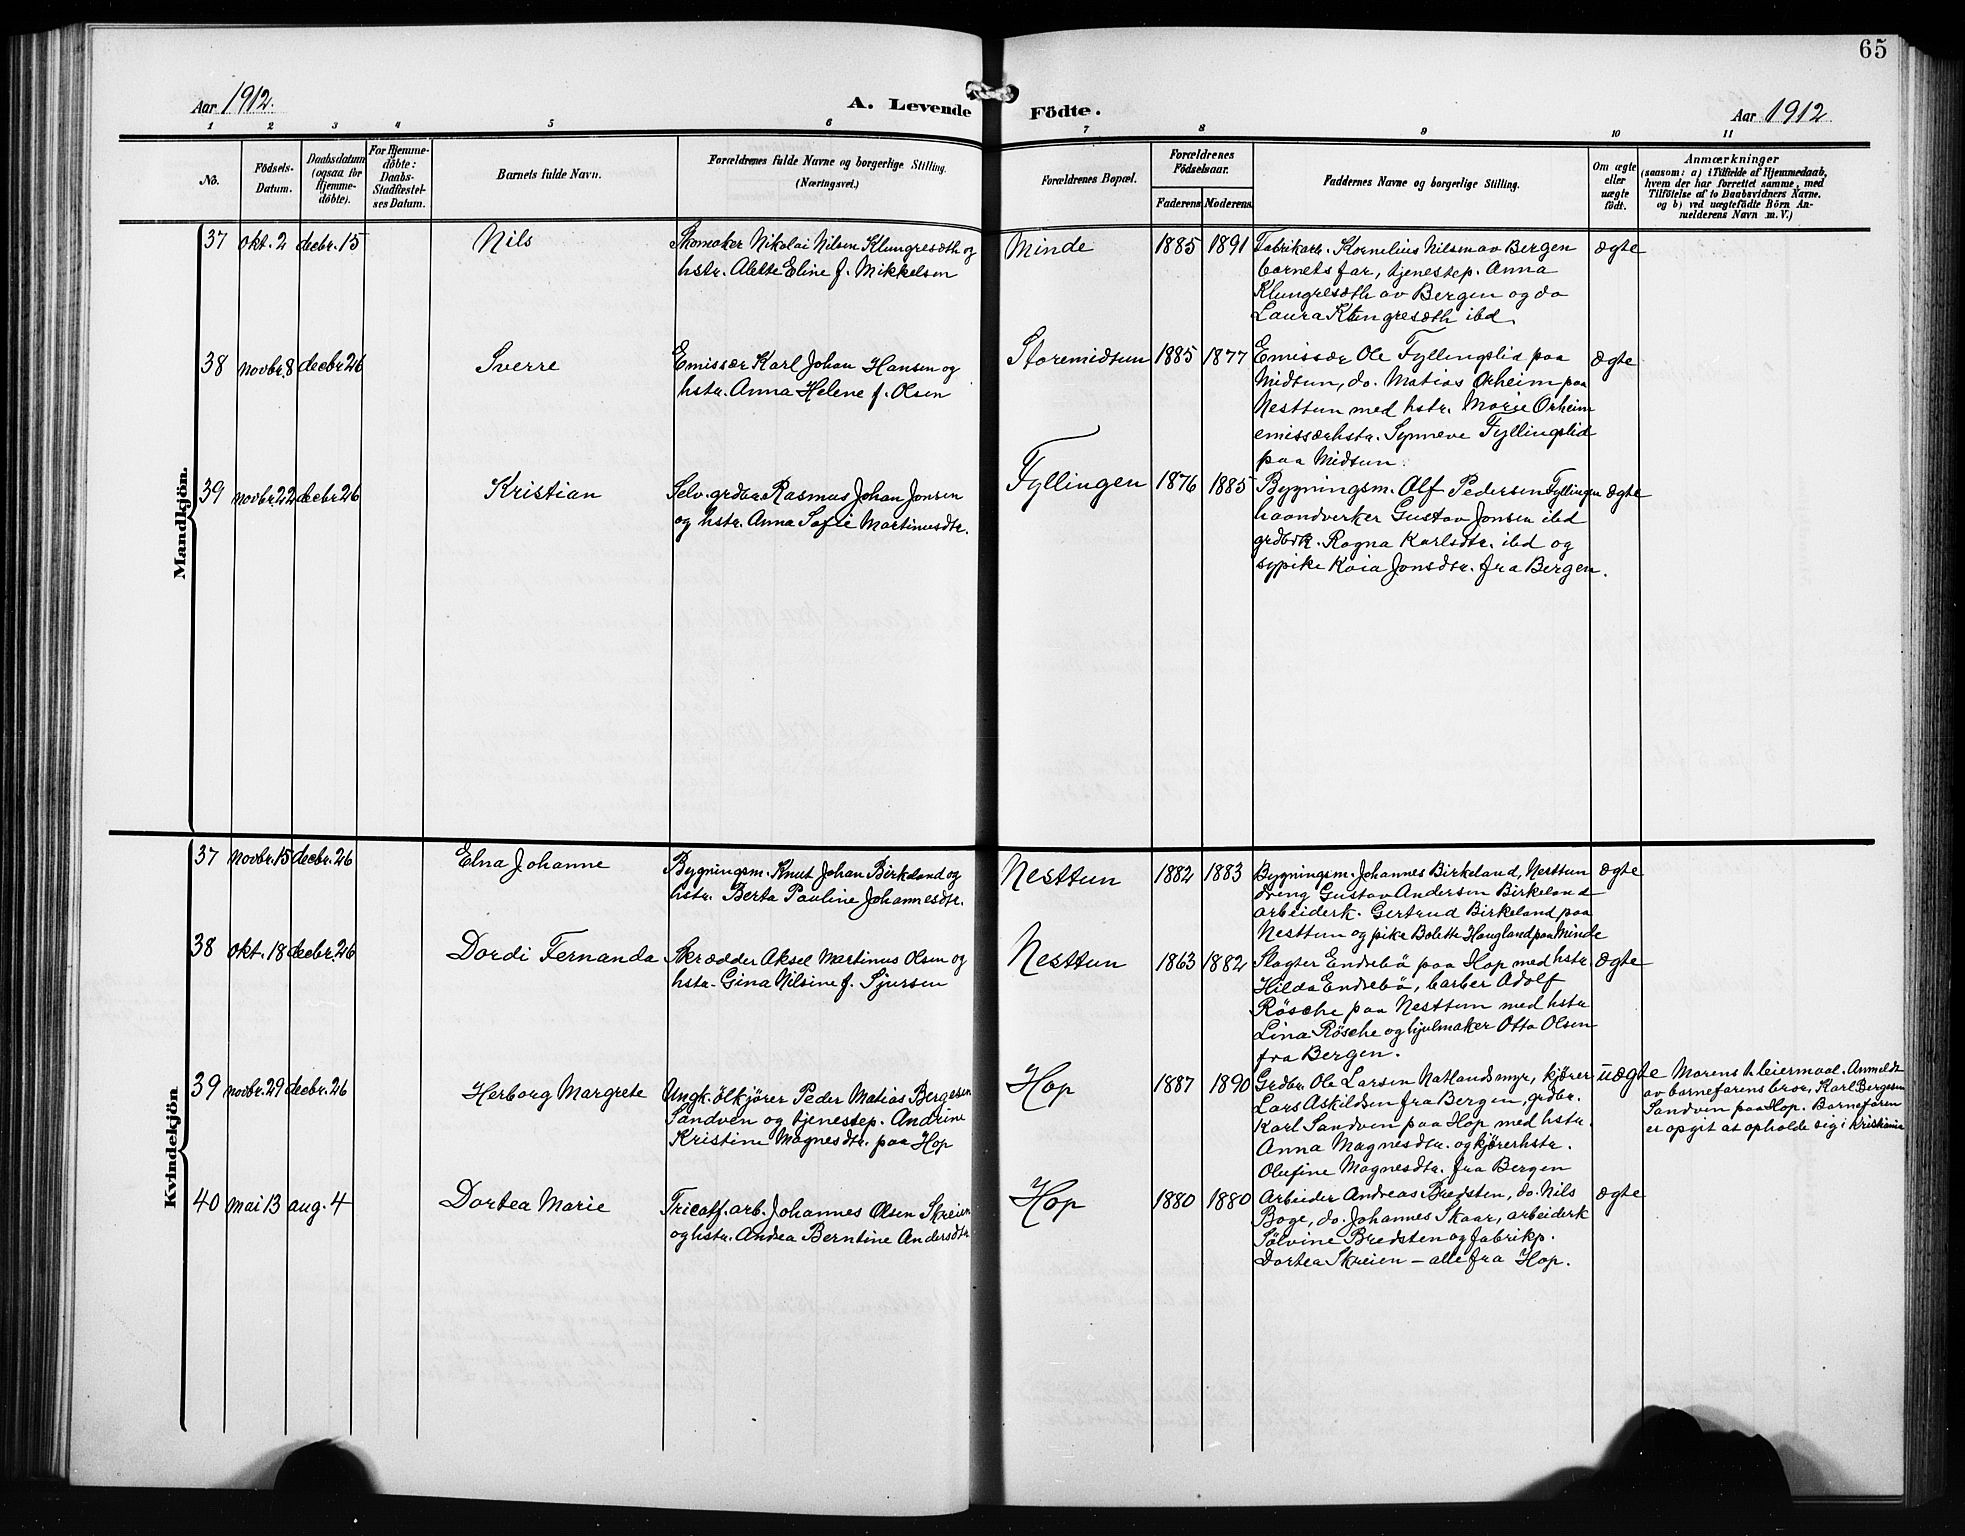 65
Aar 1912.
A. Levende Födte.
Aar 1912
1 2 3 4 5 6 7 8 9 10 11
No.
Födsels-
Datum.
Daabsdatum
(ogsaa for
Hjemme-
döbte).
For Hjemme-
döbte:
Daabs-
Stadfæstel-
ses Datum.
Barnets fulde Navn.
Forældrenes fulde Navne og borgerlige Stilling.
(Næringsvei.)
Forældrenes Bopæl.
Forældrenes
Födselsaar.
Faderens Moderens
Faddernes Navne og borgerlige Stilling.
Om ægte
eller
uægte
födt.
Anmærkninger
(saasom: a) i Tilfælde af Hjemmedaab,
hvem der har forrettet samme, med
Tilföielse af to Daabsvidners Navne.
og b) ved uægtefödte Börn An-
melderens Navn m. V.)
Mandkjön.
37 okt. 2 decbr. 15
Nils
Skomaker Nikolai Nilsen Klungresæth og
hstr. Alette Eline f. Mikkelsen
Minde
1885 1891
Fabrikarb. Kornelius Nilsen av Bergen
barnets far, tjenestep. Anna
Klungresæth av Bergen og do
Laura Klungresæth ibd.
ægte
38 novbr. 8 decbr. 26
Sverre
Emissær Karl Johan Hansen og
hstr. Anna Helene f. Olsen
Storemidtun
1885 1877
Emissær Ole Fyllingslid paa
Midtun, do. Matias Orheim paa
Nesttun med hstr. Marie Orheim
emissærhstr. Synneve Fyllingslid
paa Midtun.
ægte
39 novbr. 22 decbr. 26
Kristian
Selv. grdbr. Rasmus Johan Jonsen
og hstr. Anna Sofie Martinusdtr.
Fyllingen
1876 1885
Bygningsm. Alf Pedersen Fyllingen
haandverker Gustav Jonsen ibd
grdbrk. Ragna Karlsdtr. ibd og
sypike Kaia Jonsdtr. fra Bergen.
ægte
Kvindekjön
37 novbr. 15 decbr. 26
Elna Johanne
Bygningsm. Knut Johan Birkeland og
hstr. Berta Pauline Johannesdtr.
Nesttun
1882 1883
Bygningsm. Johannes Birkeland, Nesttun
dreng Gustav Andersen Birkeland
arbeiderk. Gertrud Birkeland paa
Nesttun og pike Bolette Haugland paa Minde
ægte
38 okt. 18 decbr. 26
Dordi Fernanda
Skrædder Aksel Martinus Olsen og
hstr. Gina Nilsine f. Sjursen
Nesttun
1863 1882
Slagter Endrebö paa Hop med hstr.
Hilda Endrebö, barber Adolf
Rösche paa Nesttun med hstr
Lina Rösche og hjulmaker Otto Olsen
fra Bergen.
ægte
39 novbr. 29 decbr. 26
Herborg Margrete
Ungk. ölkjörer Peder Matias Bergesen
Sandven og tjenestep. Andrine
Kristine Magnesdtr. paa Hop
Hop
1887 1890
Grdbr. Ole Larsen Natlandsmyr, kjörer
Lars Askildsen fra Bergen, grdbr.
Karl Sandven paa Hop med hstr.
Anna Magnesdtr. og kjörerhstr.
Olufine Magnesdtr. fra Bergen
uægte
Morens 1. leiermaal. Anmeldt
av barnefarens bror, Karl Bergesen
Sandven paa Hop. Barnefaren
er opgit at opholde sig i Kristiania
40 mai 13 aug. 4
Dortea Marie
Tricotf. arb. Johannes Olsen Skreien
og hstr. Andea Berntine Andersdtr
Hop
1880 1880
Arbeider Andreas Bredsten, do. Nils
Boge, do. Johannes Skaar, arbeiderk
Sölvine Bredsten og fabrikp.
Dortea Skreien – alle fra Hop.
ægte